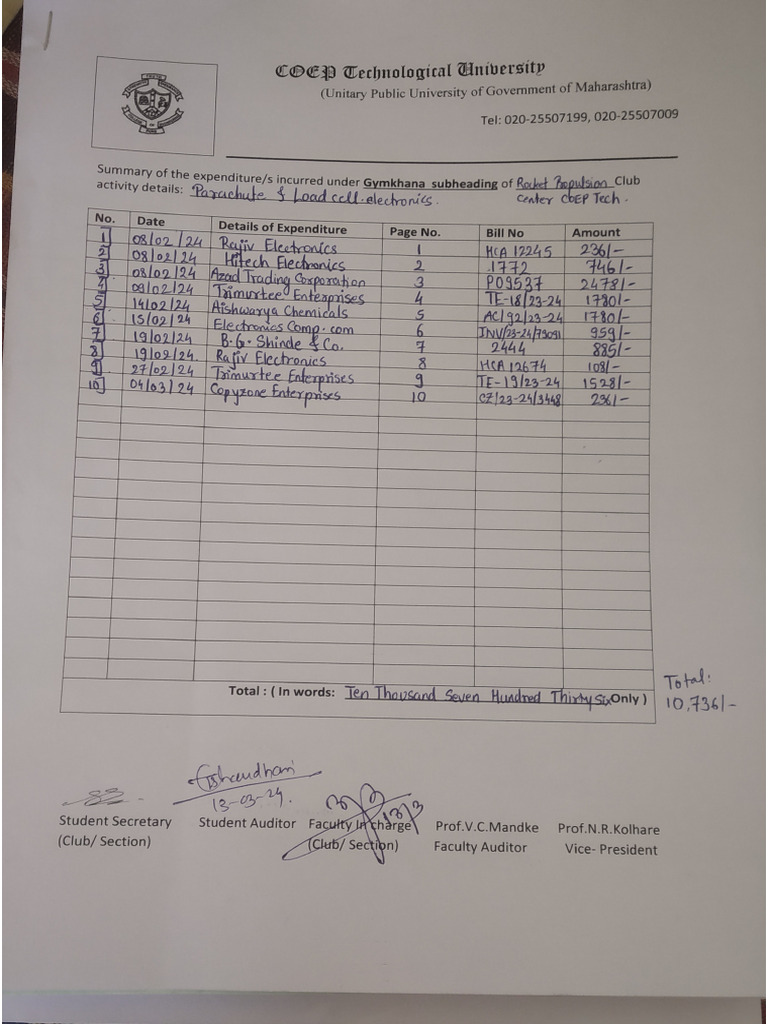 COEP Technological University
(Unitary Public University of Government of Maharashtra)
Tel: 020-25507199, 020-25507009
Summary of the expenditure/s incurred under Gymkhana subheading of Rocket Propulsion Club
activity details: Parachute & Load cell electronics. Center COEP Tech.
No. Date Details of Expenditure Page No. Bill No Amount
1 08/02/24 Rajiv Electronics 1 HCA 12245 236/-
2 08/02/24 Hitech Electronics 2 1772 746/-
3 08/02/24 Azad Trading Corporation 3 P09537 2478/-
4 09/02/24 Trimurtee Enterprises 4 TE-18/23-24 1780/-
5 14/02/24 Aishwarya Chemicals 5 AC/92/23-24 1780/-
6 15/02/24 Electronics Comp.com 6 INV/23-24/79091 959/-
7 19/02/24 B.G. Shinde & Co. 7 2444 885/-
8 19/02/24. Rajiv Electronics 8 HCA 12674 108/-
9 27/02/24 Trimurtee Enterprises 9 TE-19/23-24 1528/-
10 04/03/24 Copyzone Enterprises 10 CZ/23-24/3448 236/-
Total : ( In words: Ten Thousand Seven Hundred Thirty Six Only )
Total:
10,736/-
13-03-24.
13/3
Student Secretary Student Auditor Faculty In charge Prof.V.C.Mandke Prof.N.R.Kolhare
(Club/ Section) (Club/ Section) Faculty Auditor Vice- President